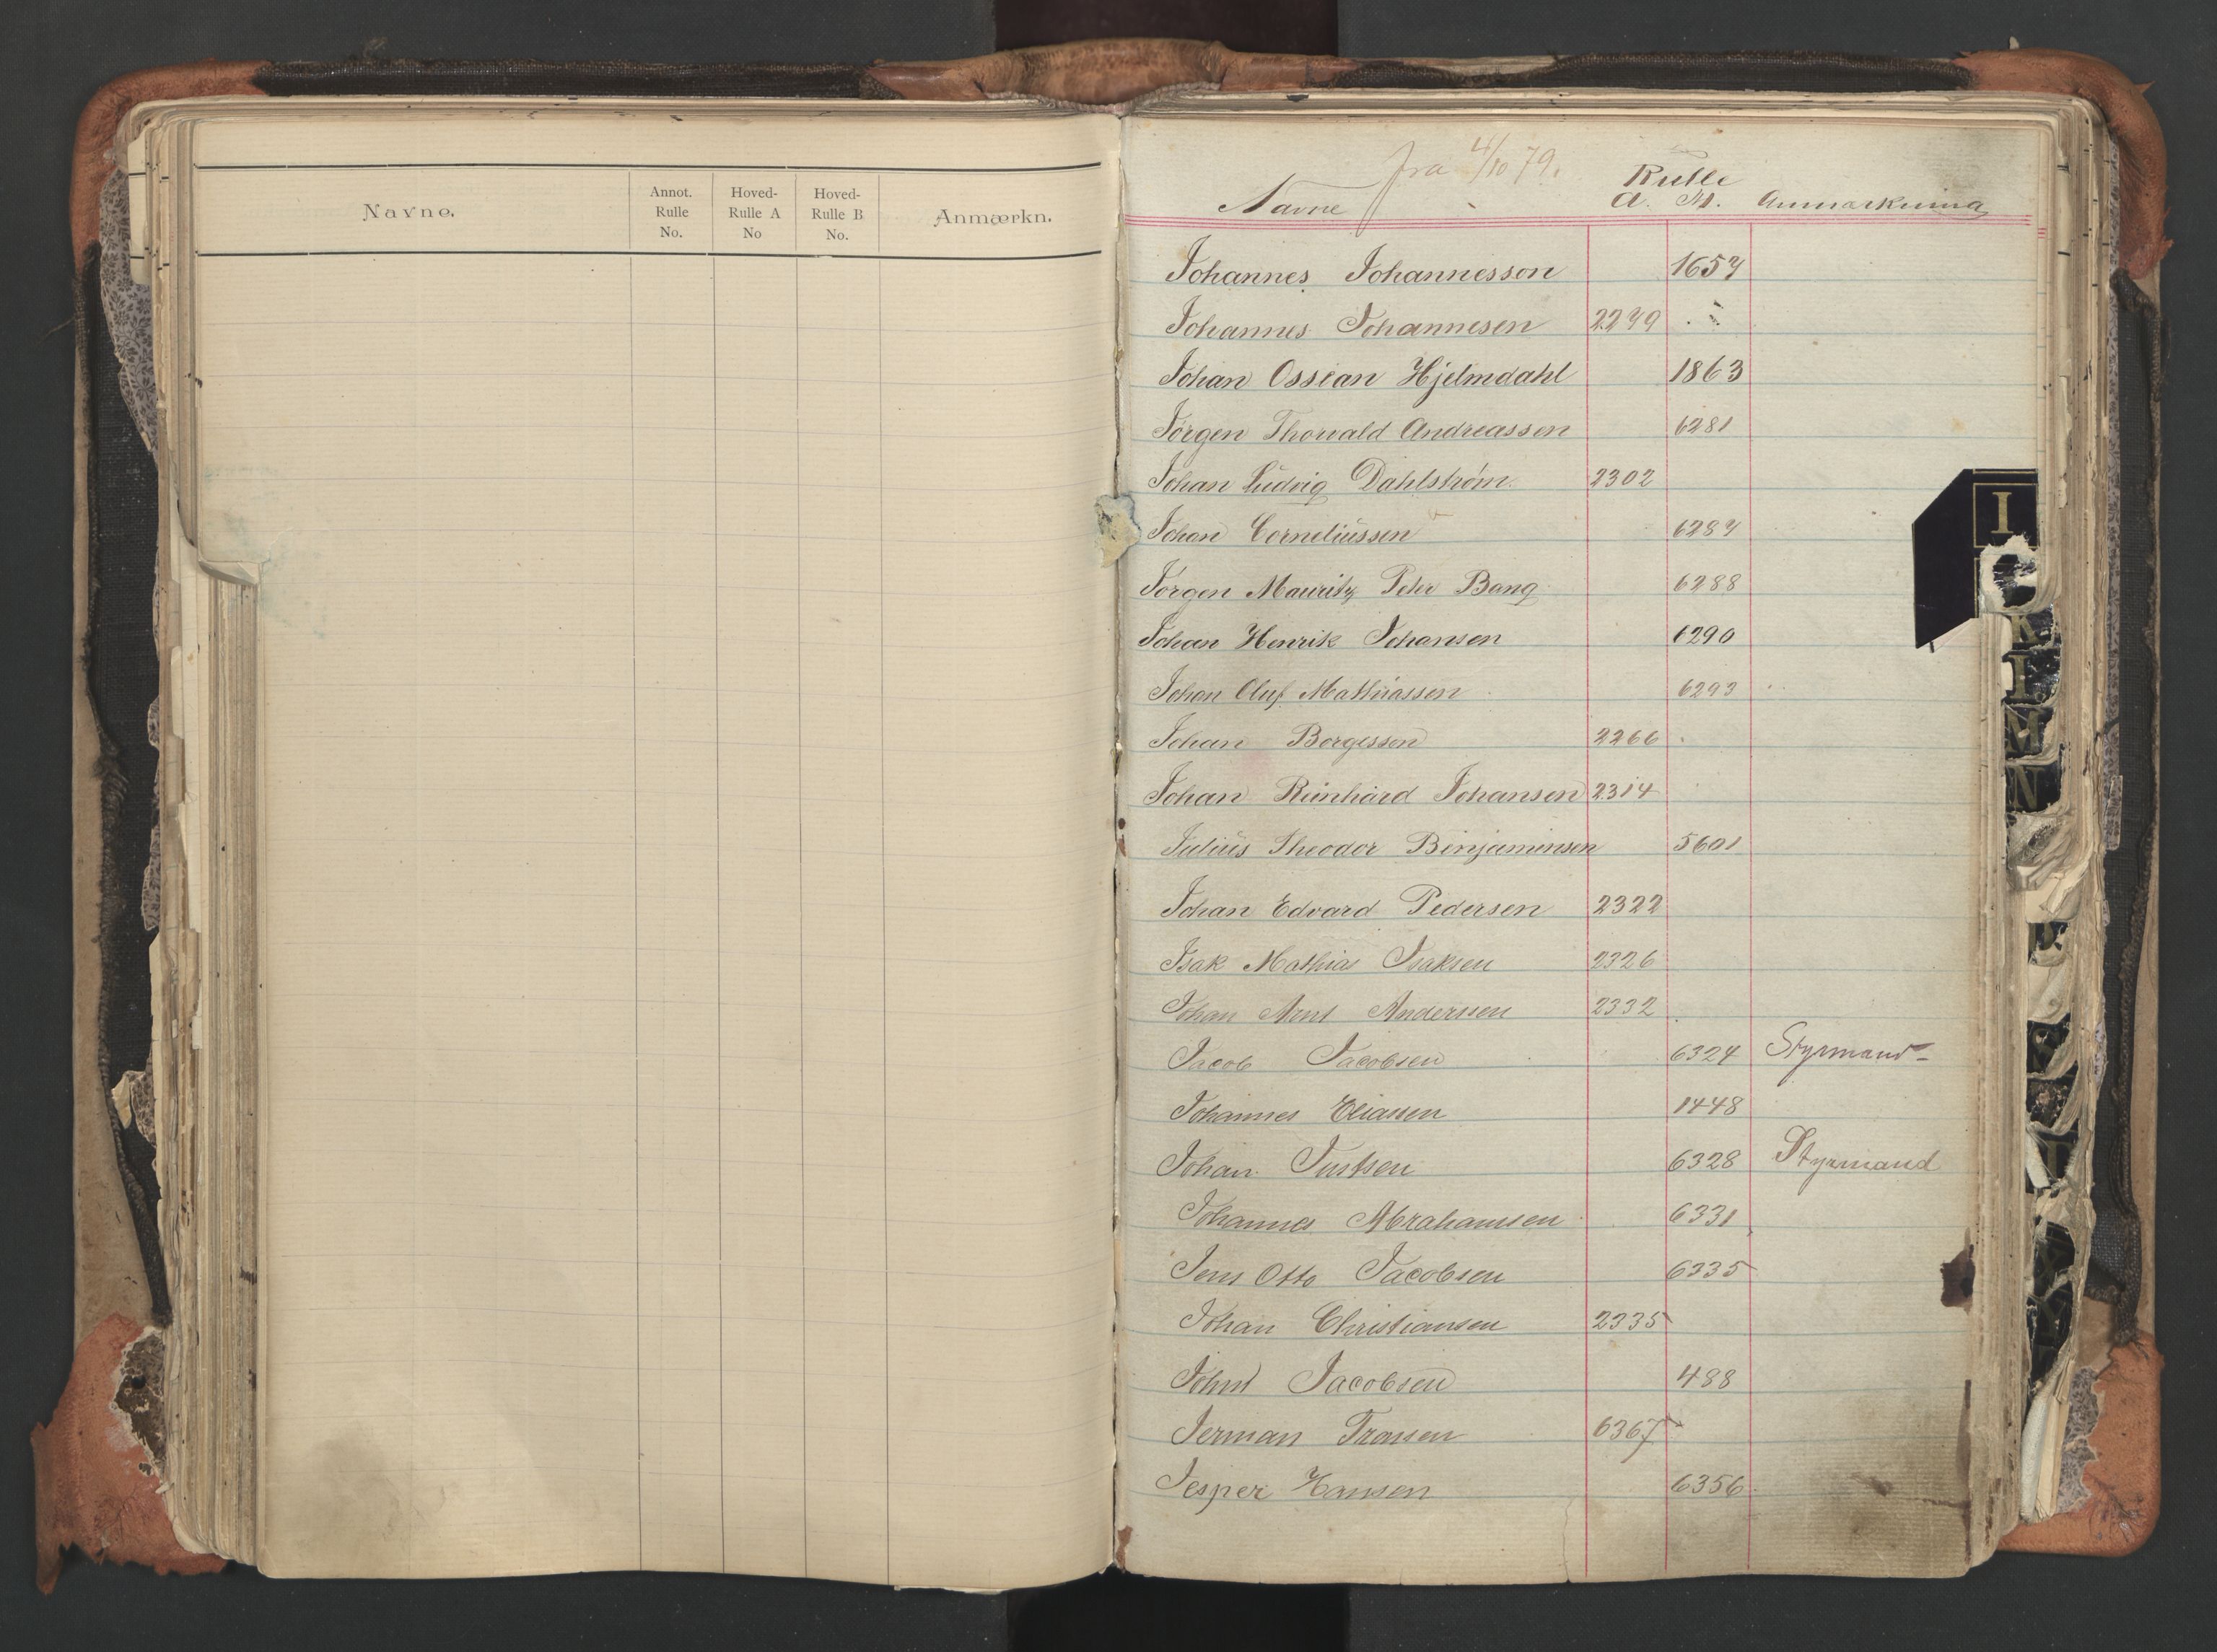 Navne.
Annot. Rulle No.
Hoved- Rulle A No
Hoved- Rulle B No.
Anmærkn.
fra 4/10 79.
Navne Rulle A. M. Anmærkning
Johannes Johannesson 1657
Johannes Johannesen 2279
Johan Ossian Hjelmdahl 1863
Jörgen Thorvald Andreassen 6281
Johan Ludvig Dahlström. 2302
Johan Corneliussen 6287
Jörgen Mauritz Peter Bang 6288
Johan Henrik Johansen 6290
Johan Oluf Mathiassen 6293
Johan Borgesson 2266
Johan Reinhard Johansen 2314
Julius Theodor Binjaminsen 5601
Johan Edvard Pedersen 2322
Isak Mathias Isaksen 2326
Johan Arnt Anderssen 2332
Jacob Jacobsen 6324 Styrmand
Johannes Eliassen 1448
Johan Justsen 6328 Styrmand
Johannes Abrahamsen 6331
Jens Otto Jacobsen 6335
Johan Christiansen 2335
John Jacobsen 488
Jerman Transen 6367
Jesper Hansen 6356
I
K
L
M
N